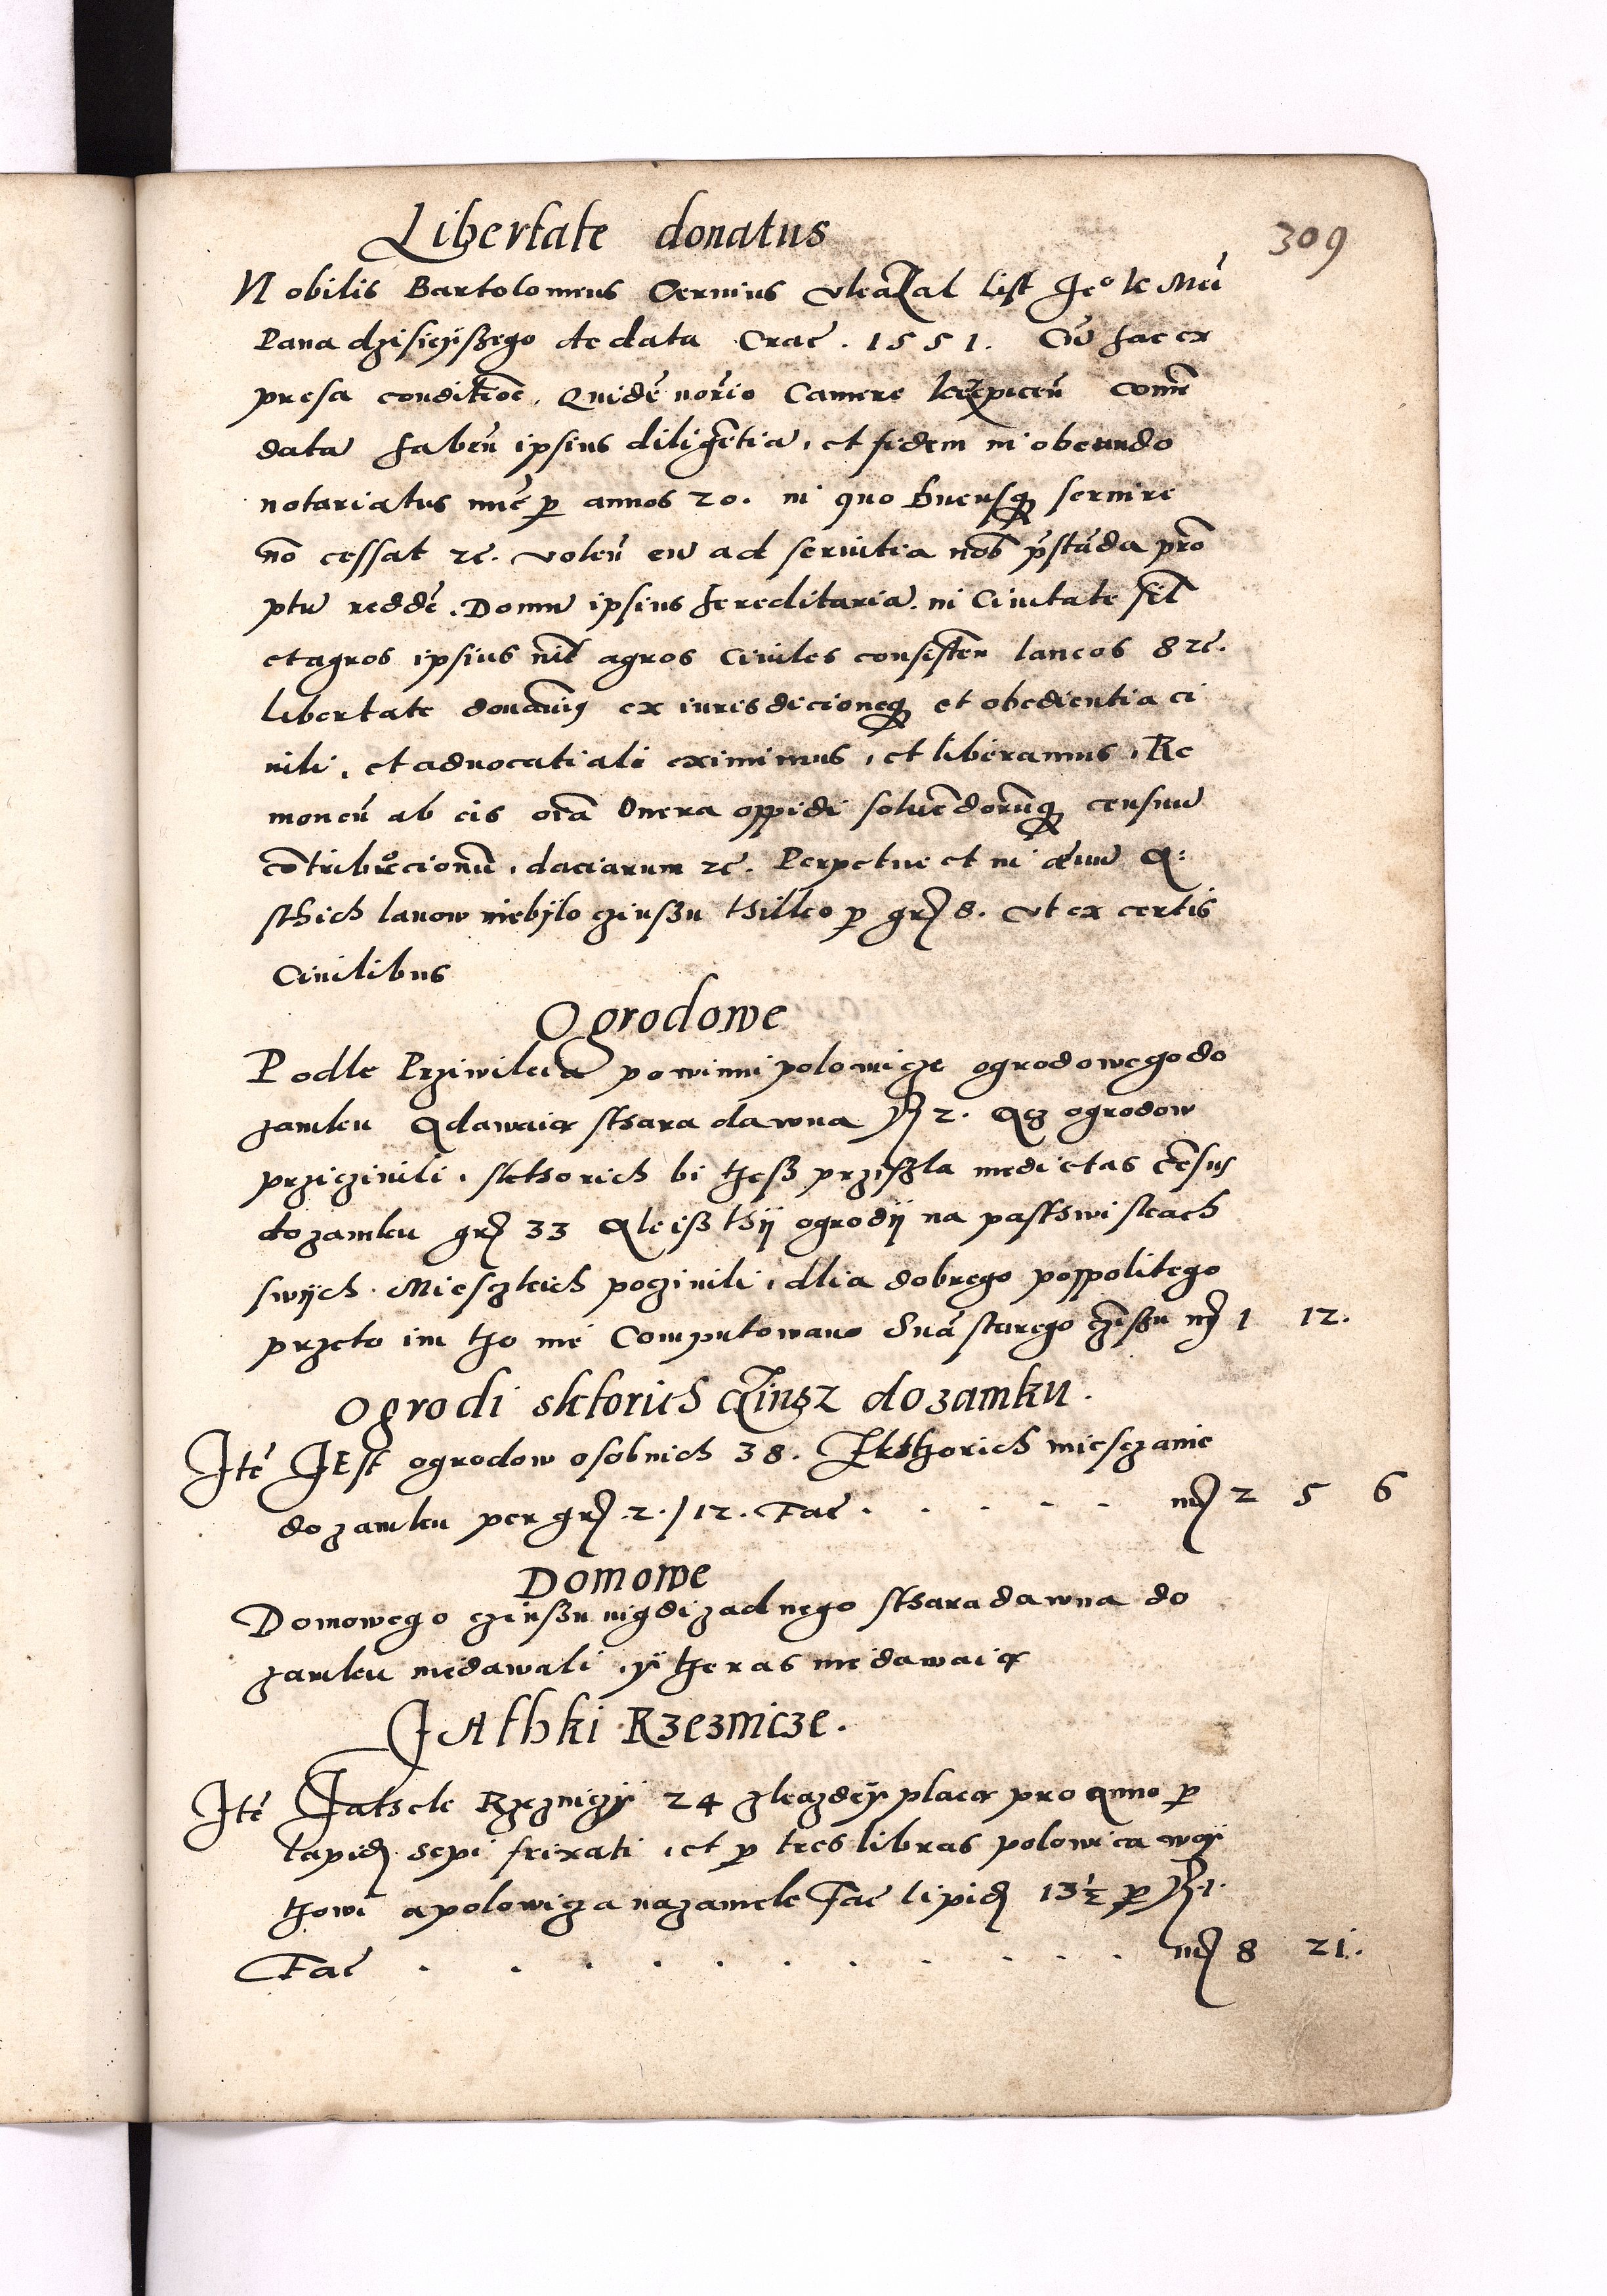 309
Libertate donatus
Nobilis Bartolomeus Cervius Ukazal list Je° k Mći
Pana dzisieyißego de data Crac̄. 1551. Cū hac ex
presa conditioē. Quidē notr̄io Camere Comē
data habeñ ipsius diligētia, et fidem in obeundo
notariatus mūc p annos 20. in quo hucusq servire
nō cessat 2c̄. volen̄ eū ad servitia nob̄ p̄stāda prō
ptū reddē. Domū ipsius hereditariā. in Civitate sit̄
et agros ipsius int̄ agros Civiles consisten̄ laneos 8 2c̄.
libertate donamꝰ ex iurisdicioneq et obedientia ci
vili, et advocatiali eximimus, et liberamus, Re
moven̄ ab eis oīa Onera oppidi solvēdorūq censuū
cōtribucionū, daciarum 2c̄. Perpetue et in ævū A:
sthich lanow niebÿlo czinßu thilko p grꝭ 8. Ut ex certis
Civilibus
Ogrodowe
Podle Prziwileia powinni polowicze ogrodowego do
zamku Adawaią sthara dawna 2. Acz ogrodow
przicziñili, sktorich bi theß przißla medietas cēsus
do zamku grꝭ 33 Ale iß thÿ ogrodÿ na pasthwiskach
swÿch Mieszkich poczinili, dlia dobrego pospolitego
przeto im tho nie Computowano Sumā starego czīßu mꝭ 1 12.
Ogrodi sktorich czinsz do zamku.
Itē Jest ogrodow osobnich 38. Zktorich miesczanie
do zamku per grꝭ 2./12. Fac̄ . . . . . mꝭ 2 5 6
Domowe
Domowego czinßu nigdi zadnego sthara dawna do
zamku niedawali, ÿ theras nie dawaią
Jathki Rzeznicze.
Itē Jathek Rzezniczÿ 24 zkazdeÿ placą pro Anno p
lapidꝭ sepi frixati, et p tres libras polowica woÿ
thowi a polowicza nazamek Fac̄ lipidꝭ 13½ p 1.
Fac̄ . . . . . . . . . . . mꝭ 8 21.